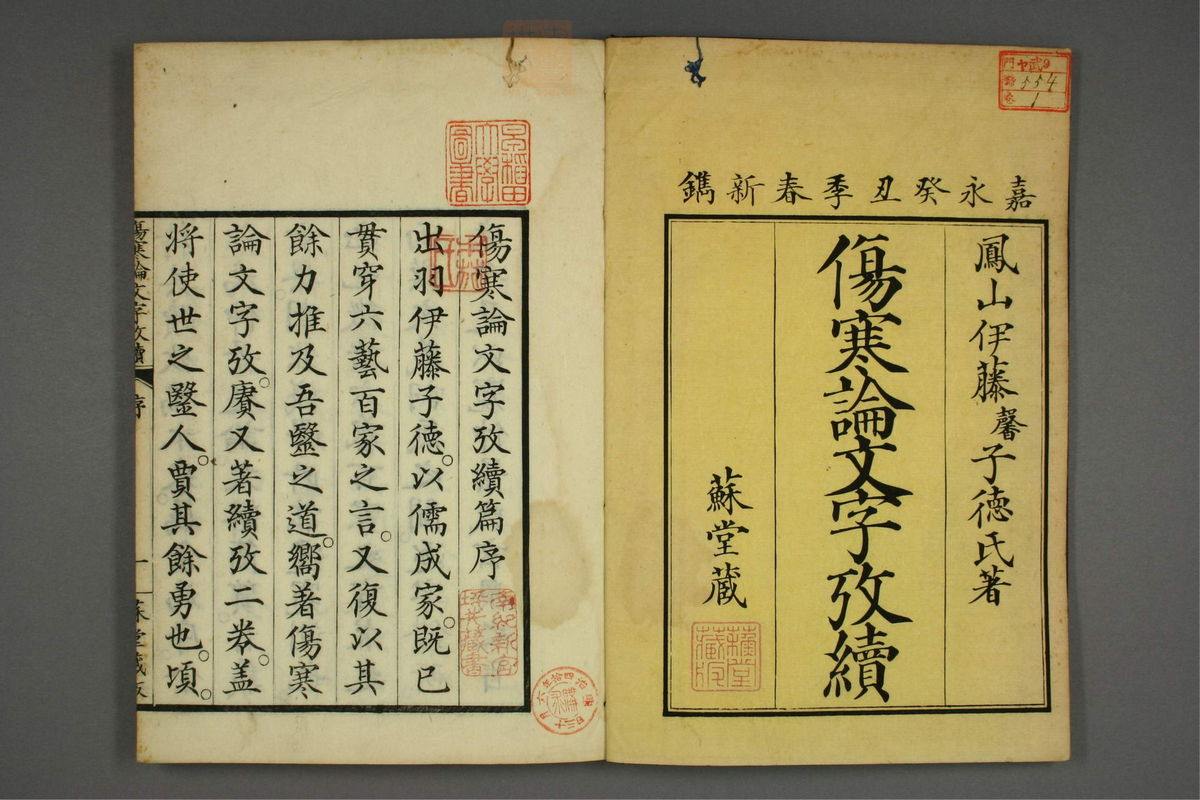 嘉永癸丑季春新鐫
鳳山伊藤馨子德氏著
傷寒論文字攷續
蘇堂藏
門 ヤ武9
號 554
卷 1
早稲田大學圖書
傷寒論文字攷續篇序
出羽伊藤子德。以儒成家。既已
貫穿六藝百家之言。又復以其
餘力推及吾毉之道。嚮著傷寒
論文字攷。賡又著續攷二卷。蓋
將使世之毉人。賈其餘勇也。頃。
傷寒論文字攷續
序
一
蘇堂藏版